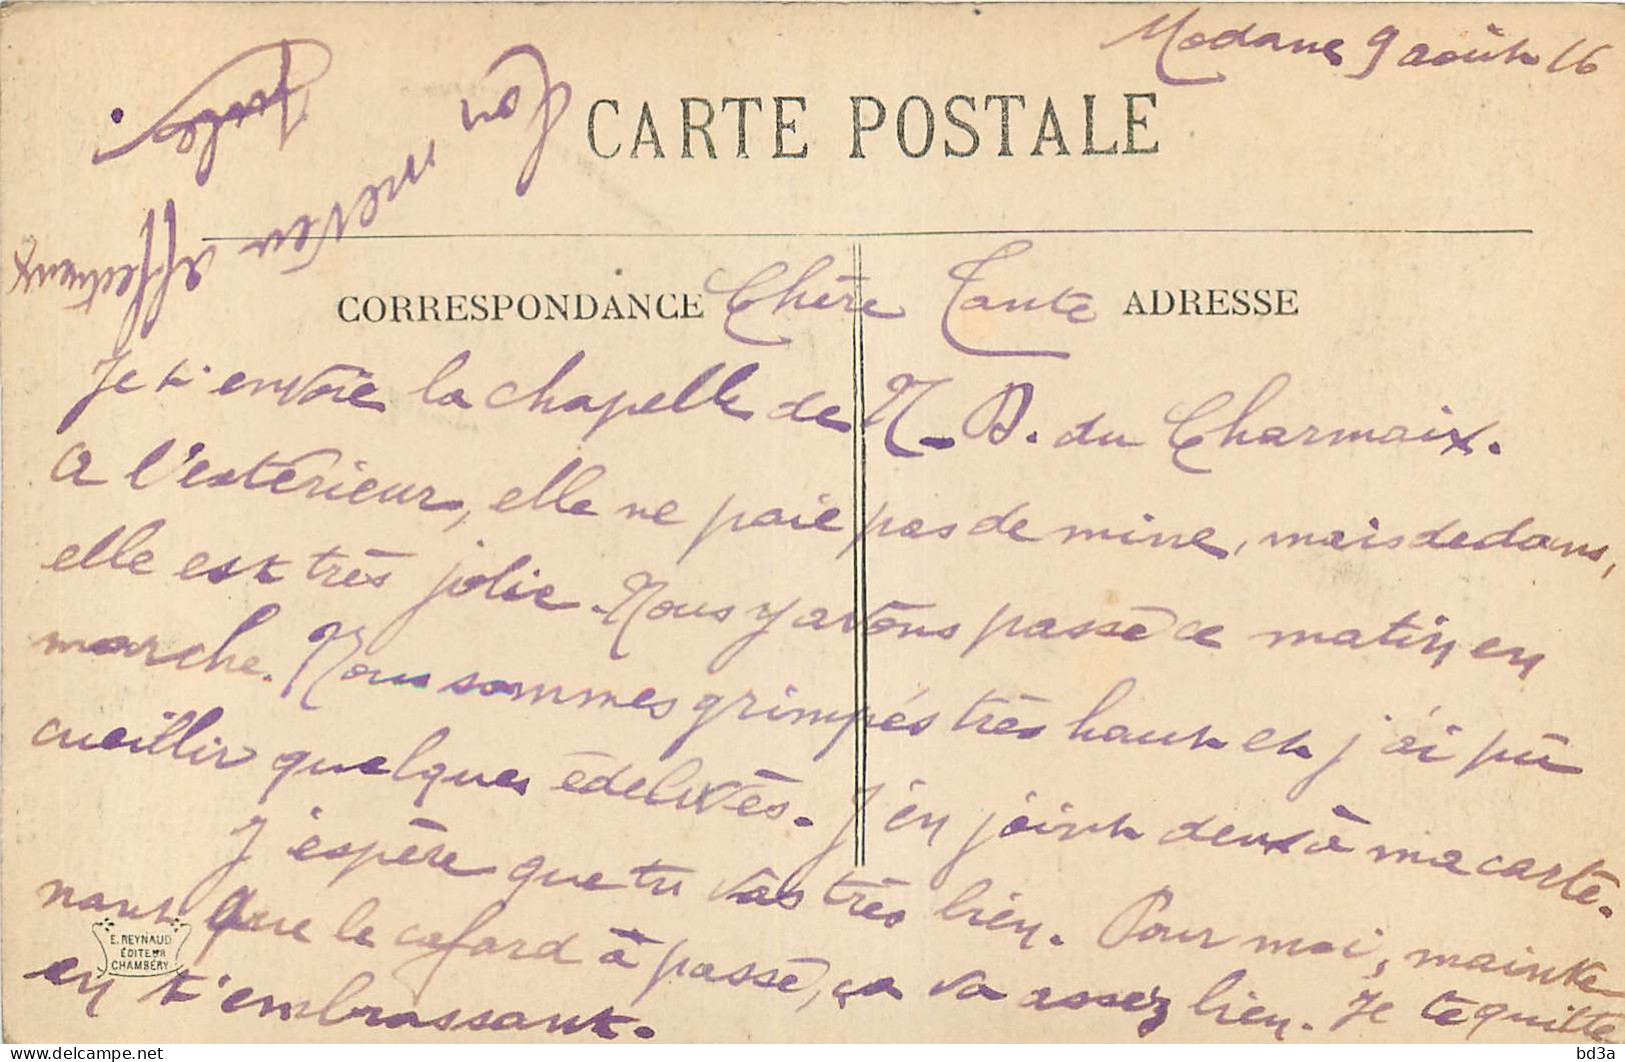 Modane 9 août 16
CARTE POSTALE
CORRESPONDANCE
ADRESSE
Chère Tante
Je t'envoie la chapelle de N.D. du Charmaix.
A l'extérieur, elle ne paie pas de mine, mais dedans,
elle est très jolie. Nous y avons passé ce matin en
marche. Nous sommes grimpés très haut et j'ai pû
cueillir quelques édelvès. J'en joint deux à ma carte.
J'espère que tu vas très bien. Pour moi, mainte-
nant que le cafard à passé, ça va assez bien. Je te quitte
en t'embrassant.
Ton
neveu
affectueux
Jules
E. REYNAUD
ÉDITEUR
CHAMBÉRY
delcampe.net
bd3a